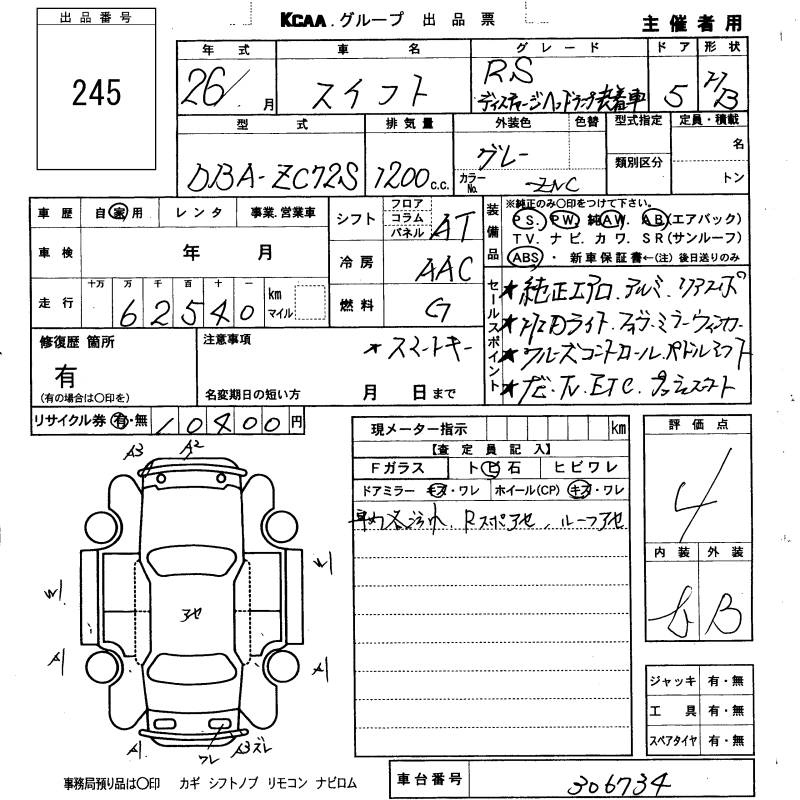 出品番号
245
KCAA.グループ 出品票
主催者用
年式 車名 グレード ドア 形状
26/ 月 スイフト RS 5
ディスチャージヘッドランプ装着車
型式 排気量 外装色 色替 型式指定 定員・積載
DBA-ZC72S 1200 c.c. グレー カラーNo. ZNC 類別区分 名 トン
車歴 自家用 レンタ 事業.営業車
車検 年 月
走行 十万 万 千 百 十 一 km マイル
62540
シフト フロア コラム パネル AT
冷房 AAC
燃料 G
装備品
※純正のみ○印をつけて下さい。
PS. PW. 純AW. AB(エアバック)
TV. ナビ. カワ. SR(サンルーフ)
ABS ・ 新車保証書←(注) 後日送りのみ
セールスポイント
★純正エアロ.アルミ.リアスポ
★HIDライト.ウインカー
★クルーズコントロール.パドルシフト
★ナビ.TV.ETC.プッシュスタート
修復歴 箇所
有
(有の場合は○印を)
注意事項
★スマートキー
名変期日の短い方 月 日まで
リサイクル券 有・無 10400 円
現メーター指示 km
【査定員記入】
Fガラス トビ石 ヒビワレ
ドアミラー キズ・ワレ ホイール(CP) キズ・ワレ
Rスポアセ、ルーフアセ
評価点
4
内装 外装
B
ジャッキ 有・無
工具 有・無
スペアタイヤ 有・無
A3 A2
W1 W1
アセ
A1 A1
A1 ワレ A3ズレ
事務局預り品は○印 カギ シフトノブ リモコン ナビロム
車台番号 306734